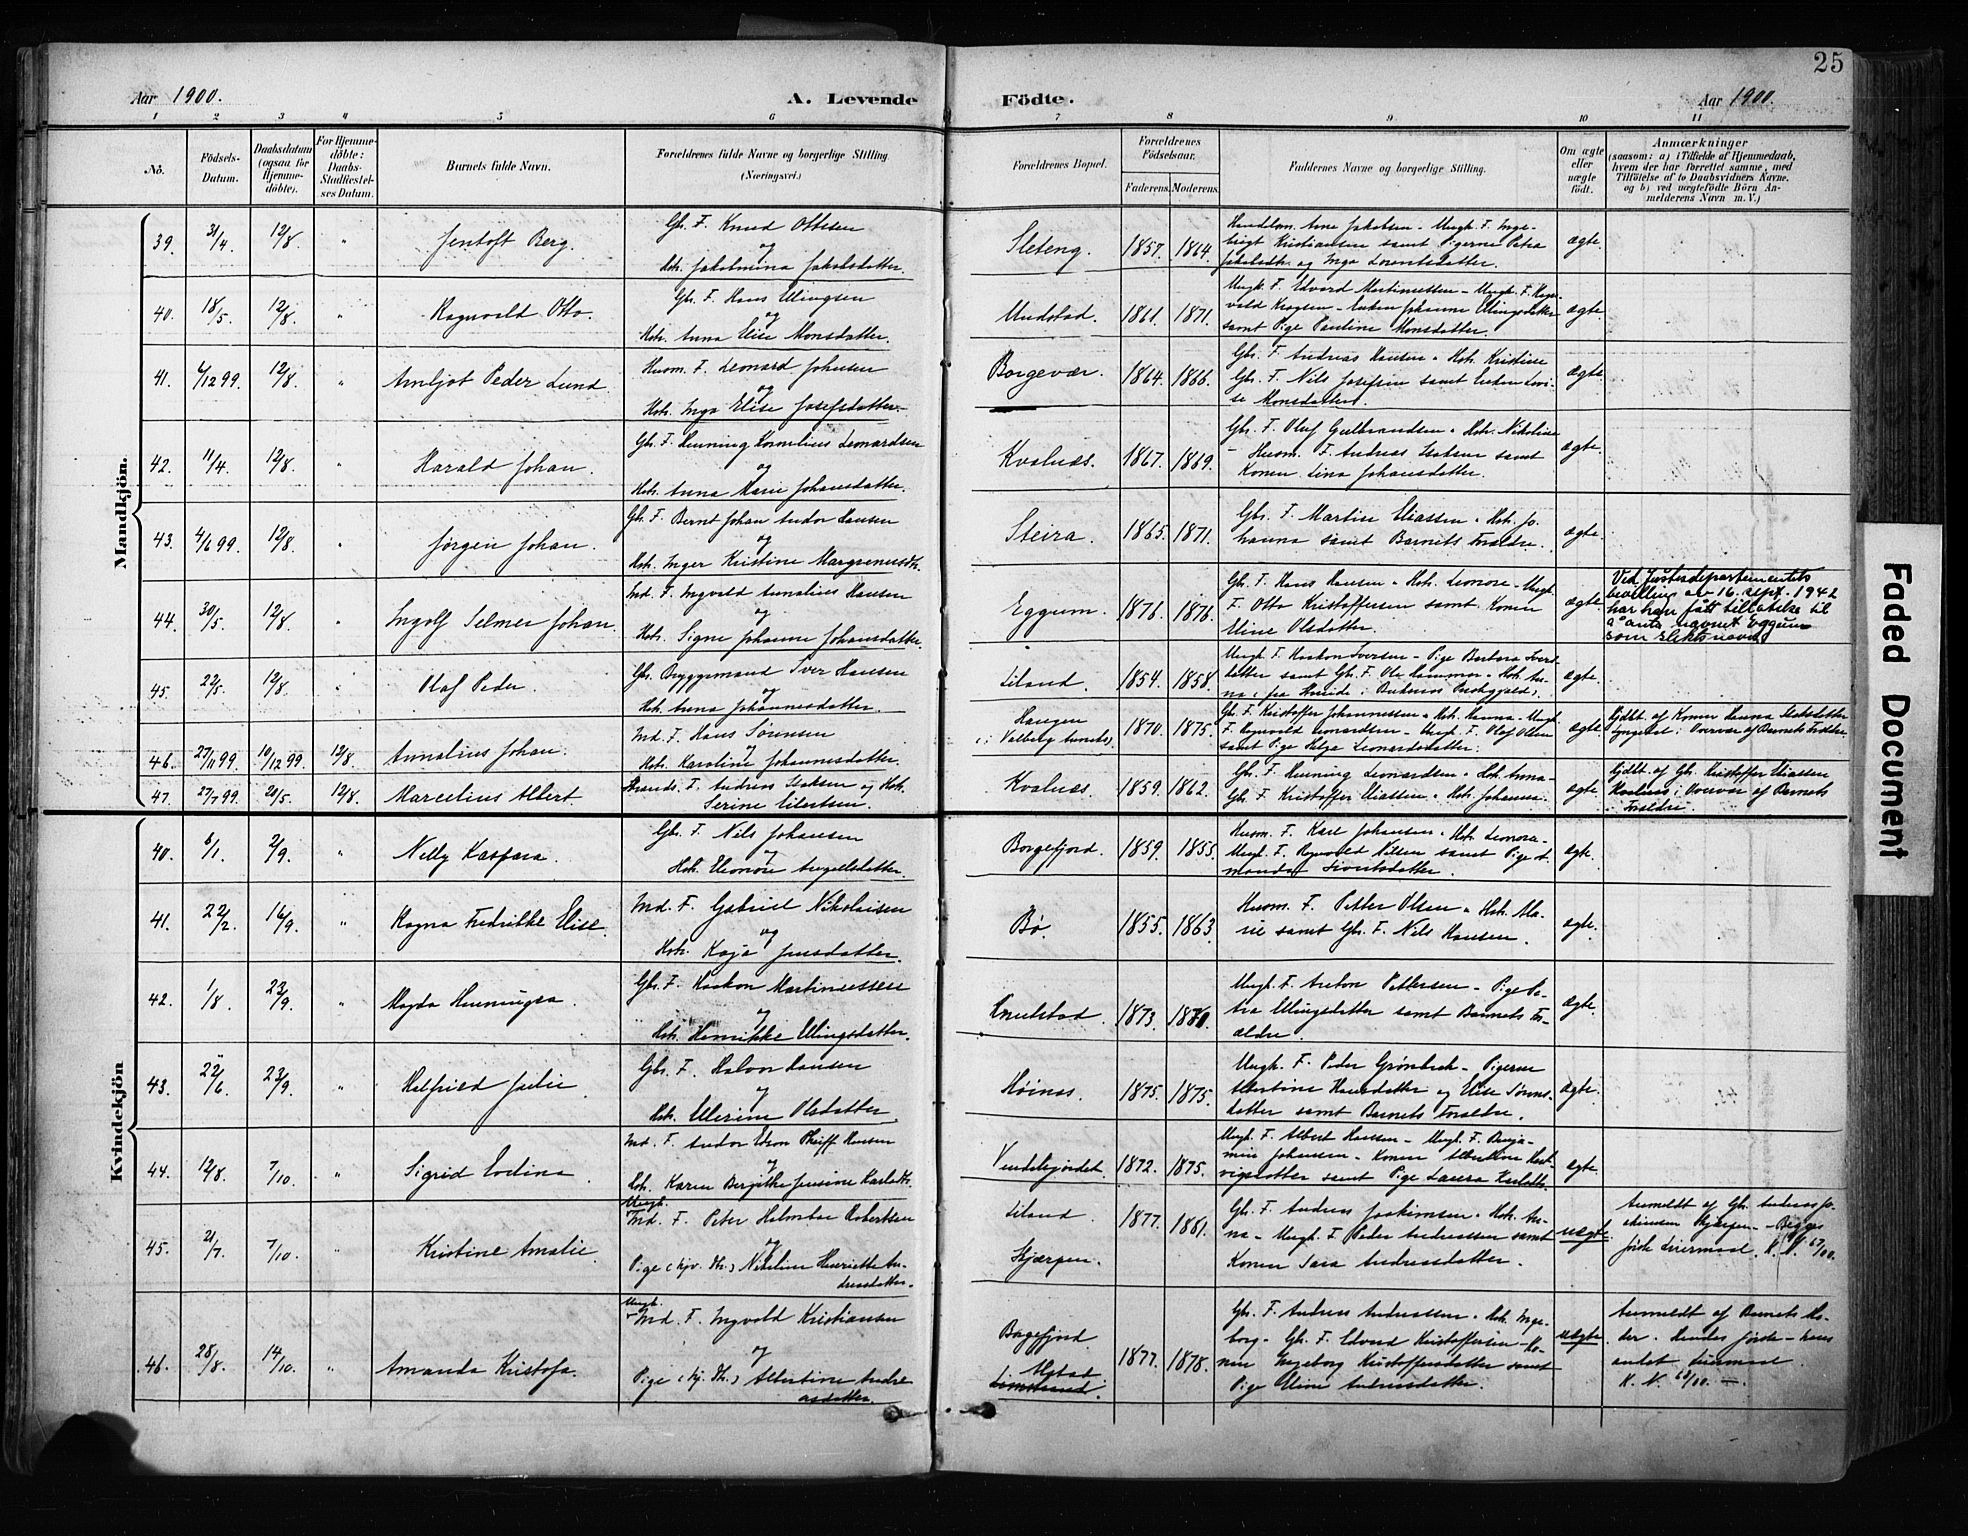 25
Aar 1900.
A. Levende
Födte.
Aar 1900.
1 2 3 4 5 6 7 8 9 10 11
No.
Födsels-
Datum.
Daabsdatum
(ogsaa for
Hjemme-
döbte).
For Hjemme-
döbte:
Daabs-
Stadfæstel-
ses Datum.
Barnets fulde Navn.
Forældrenes fulde Navne og borgerlige Stilling
(Næringsvei.)
Forældrenes Bopæl.
Forældrenes
Födselsaar.
Faderens. Moderens.
Faddernes Navne og borgerlige Stilling.
Om ægte
eller
uægte
födt.
Anmærkninger
(saasom: a) i Tilfælde af Hjemmedaab,
hvem der har forrettet samme, med
Tilföielse af to Daabsvidners Navne,
og b) ved uægtefödte Börn An-
melderens Navn m. V.)
Mandkjön.
39. 31/4 12/8 " Jentoft Berg.
Gbr. F. Knud Ottesen
og
Hstr. Jakobmina Jakobsdatter.
Sleteng. 1857. 1864.
Handelsm. Arne Jakobsen - Ungk. F. Inge-
brigt Kristiansen samt Pigerne Petra
Jakobsdtr. og Inga Lorentsdatter.
ægte.
40. 18/5 12/8 " Ragnvald Otto.
Gbr. F. Hans Ellingsen
og
Hstr. Anna Elise Monsdatter.
Undstad. 1861. 1871.
Ungk. F. Edvard Martinussen - Ungk. F. Rag-
vald Kragsen - Enken Johanna Ellingsdatter
samt Pige Pauline Monsdatter.
ægte.
41. 6/12 99. 12/8 " Arnljot Peder Lund
Husm. F. Leonard Johnsen
og
Hstr. Inga Elise Josefsdatter.
Borgevær. 1864. 1866.
Gbr. F. Andreas Hansen & Hstr. Kristine
Gbr. F. Nils Josefsen samt Enken Lovi-
se Monsdatter.
ægte.
42. 11/4 12/8 " Harald Johan.
Gbr. F. Henning Kornelius Leonardsen
og
Hstr. Anna Marie Johansdatter.
Kvalnæs. 1867. 1869.
Gbr. F. Oluf Gulbrandsen & Hstr. Nikoline
- Husm. F. Andreas Isaksen samt
Konen Lina Johansdatter.
ægte.
43. 4/6 99. 12/8 " Jørgen Johan.
Gbr. F. Bernt Johan Andor Hansen
og
Hstr. Inger Kristine Margrenusdtr.
Steira. 1865. 1871.
Gbr. F. Martin Eliassen & Hstr. Jo-
hanna samt Barnets Forældre.
ægte.
44. 30/5 12/8 " Ingolf Selmer Johan.
Ind. F. Ingvald Annalius Hansen
og
Hstr. Signe Johanne Johansdatter.
Eggum. 1876. 1876.
Gbr. F. Hans Hansen & Hstr. Leonore - Ungk.
F. Otto Kristoffersen samt Konen
Eline Olsdatter.
ægte.
Ved Justisdepartementets
bevilling av 16. sept. 1942
har han fått tillatelse til
å anta navnet Eggum
som slektsnavn.
45. 22/5. 12/8. " Olaf Peder.
Gbr. Bryggemand Iver Hansen
og
Hstr. Anna Johannesdatter.
Liland. 1854. 1858.
Ungk. F. Haakon Iversen - Pige Barbara Ivers-
datter samt Gbr. F. Ole Hammer & Hstr. An-
na, fra i Buksnes Prestegjeld.
ægte.
46. 27/11 99. 10/12 99. 12/8 Annalius Johan.
Ind. F. Hans Sörensen
og
Hstr. Karoline Johannesdatter.
Haugen
(i Valberg annex) 1870. 1875.
Gbr. F. Kristoffer Johannessen & Hstr. Hanna - Ungk.
F. Ragnvald Leonardsen - Ungk. F. Olaf Olsen
samt Pige Helga Leonardsdatter.
ægte.
Hjdbt. af Konen Hanna Isaksdatter
Lyngedal i Overvær af Barnets Forældre
47. 27/7 99. 21/5. 12/8. Marcelius Albert
Strands. F. Andreas Isaksen og Hstr.
Serine Eilertsen.
Kvalnæs. 1859. 1862.
Gbr. F. Henning Leonardsen & Hstr. Anna -
Gbr. F. Kristoffer Eliassen & Hstr. Johanna.
ægte.
Hjdbt. af Gbr. Kristoffer Eliassen
Kvalnæs i Overvær af Barnets
Forældre
Kvindekjön
40. 6/1. 2/9. " Nelly Kaspara.
Gbr. F. Nils Johansen
og
Hstr. Eleonore Angellsdatter.
Borgefjord. 1859. 1855.
Husm. F. Karl Johansen & Hstr. Leonora -
Ungk. F. Ragvald Nilsen samt Pige A-
manda Sivertsdatter.
ægte.
41. 22/2. 16/9. " Ragna Fredrikke Elise.
Ind. F. Gabriel Nikolaisen
og
Hstr. Kaja Jensdatter.
Bø. 1855. 1863.
Husm. F. Petter Olsen & Hstr. Ma-
rie samt Gbr. F. Nils Hansen.
ægte.
42. 1/8. 23/9. " Magda Henningea.
Gbr. F. Haakon Martinussen
og
Hstr. Henrikke Ellingsdatter.
Knutstad. 1873. 1870.
Ungk. F. Anton Pettersen - Pige Pe-
tra Ellingsdatter samt Barnets For-
ældre.
ægte.
43. 22/6 23/9. " Halfrild Julie
Gbr. F. Halvor Hansen
og
Hstr. Ellerine Olsdatter.
Höinæs. 1875. 1875.
Ungk. F. Peder Grönbech - Pigerne
Albertine Hansdatter og Elise Sörens-
datter samt Barnets Forældre.
ægte.
44. 12/8. 7/10. " Sigrid Evelina
Ind. F. Andor Edson Pleiff Hansen
og
Hstr. Karen Bergitte Jensine Karlsdtr.
Vendalsjordet. 1872. 1875.
Ungk. F. Albert Hansen - Ungk. F. Benja-
min Johansen - Konen Albertine Hart-
vigsdatter samt Pige Laura Karlsdtr.
ægte.
45. 21/7. 7/10. " Kristine Amalie
Ungk.
Ind. F. Peter Holmboe Robertsen
og
Pige (hjv. Th.) Nikoline Henriette An-
dreasdatter.
Liland
Skjerpen. 1877. 1881.
Gbr. F. Andreas Joakimsen & Hstr. An-
na - Ungk. F. Peder Andreassen samt
Konen Sara Andreasdatter.
uægte.
Anmeldt af Gbr. Andreas Jo-
akimsen Skjerpen. - Begges
første Leiermaal. K. N. 67/00.
46. 28/8. 14/10. " Amanda Kristofa.
Ungk.
Ind. F. Ingvald Kristiansen
og
Pige (hj. Th.) Albertine Andre-
asdatter.
Borgefjord
Ystad
Limstrand. 1877. 1878.
Gbr. F. Andreas Andreassen & Hstr. Inge-
borg - Gbr. F. Edvard Kristoffersen - Ko-
nen Ingeborg Kristoffersdatter samt
Pige Eline Andreasdatter.
uægte.
Anmeldt af Barnets Mo-
der. Hendes første - hans
andet Leiermaal.
K. N. 68/00. -
Faded Document